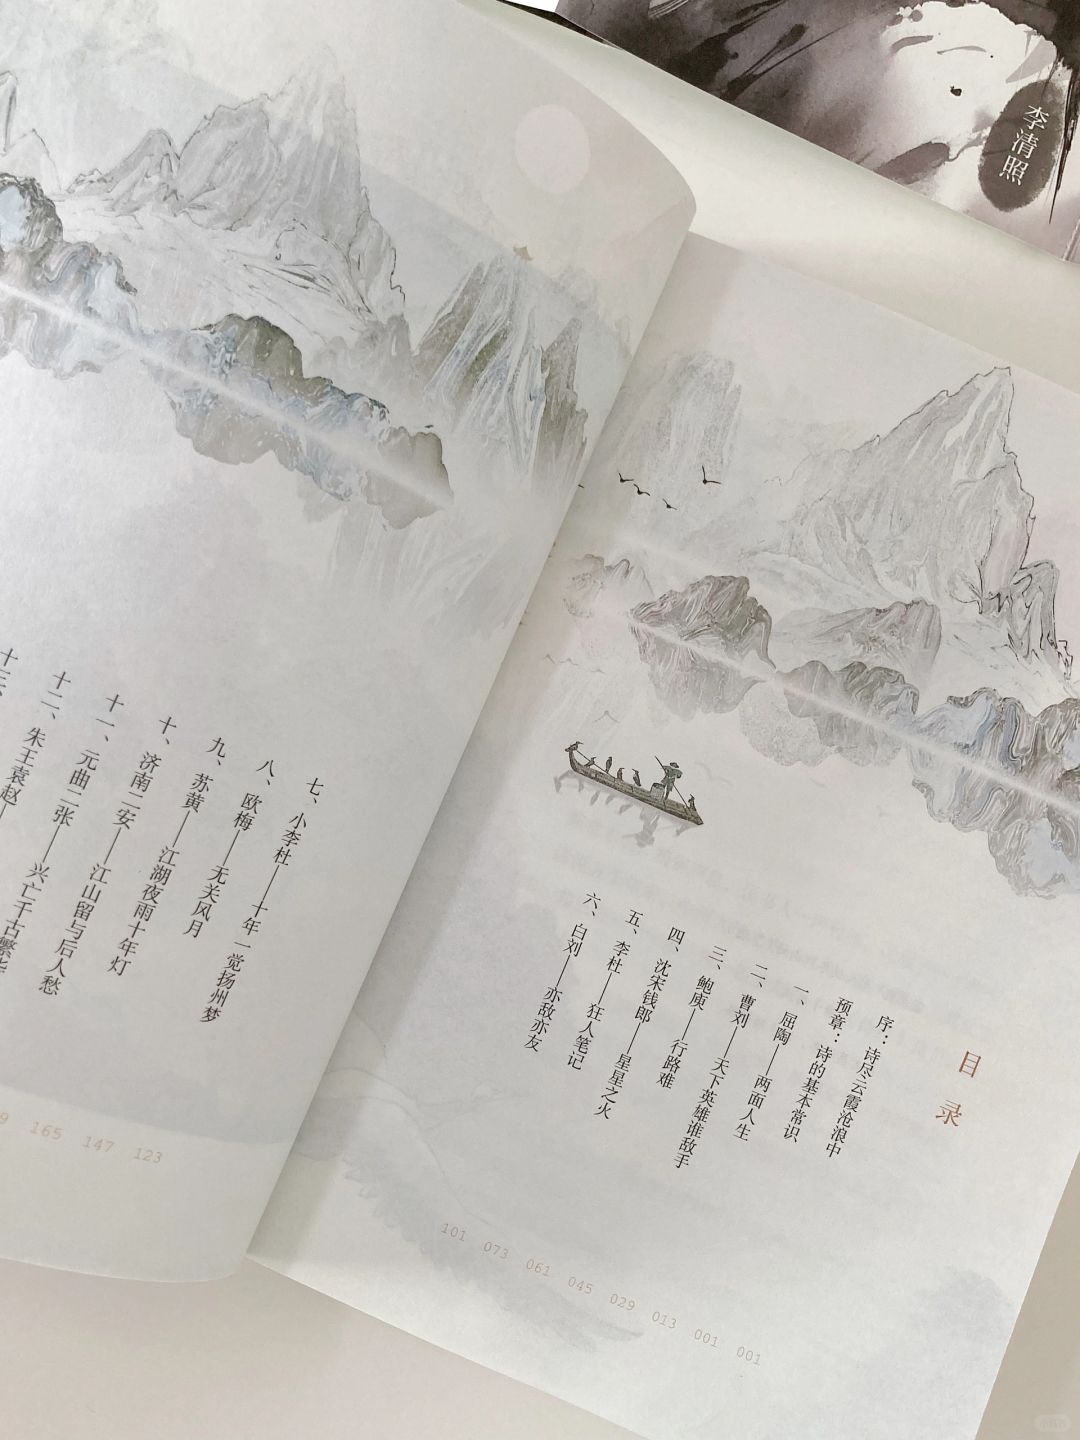 李清照
目录
序：诗尽云霞沧浪中
预章：诗的基本常识
一、屈陶——两面人生
二、曹刘——天下英雄谁敌手
三、鲍庾——行路难
四、沈宋钱郎——星星之火
五、李杜——狂人笔记
六、白刘——亦敌亦友
101 073 061 045 029 013 001 001
七、小李杜——十年一觉扬州梦
八、欧梅——无关风月
九、苏黄——江湖夜雨十年灯
十、济南二安——江山留与后人愁
十一、元曲二张——兴亡千古繁华
十二、朱王袁赵——
十三、
165 147 123